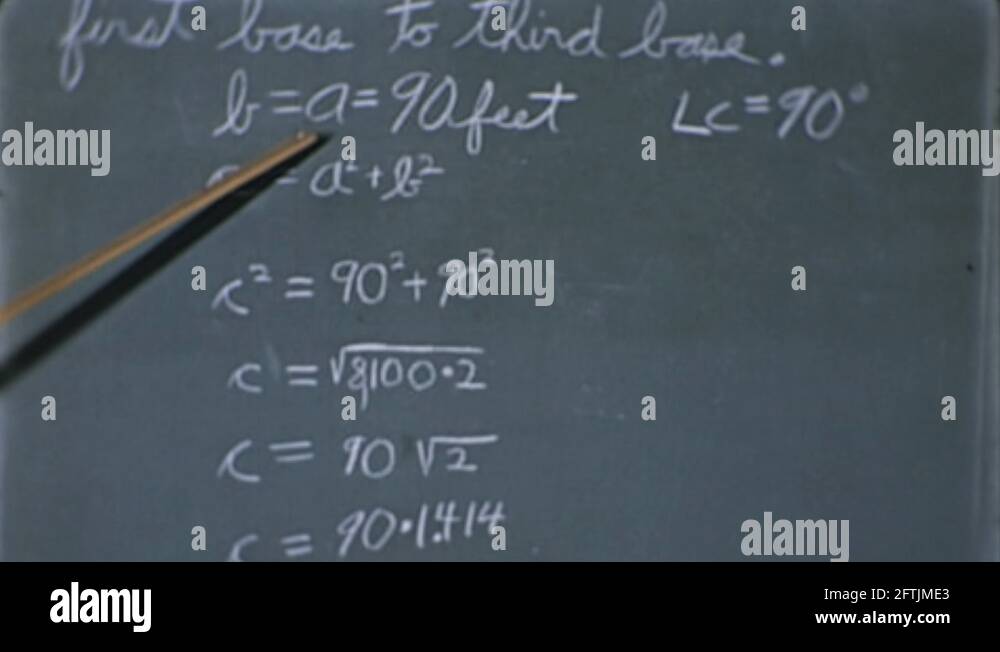 first base to third base.
b = a = 90 feet ∠C = 90°
= a² + b²
c² = 90² + 90²
c = √8100·2
c = 90 √2
c = 90·1.414
alamy
alamy
alamy
a
alamy
Image ID: 2FTJME3
www.alamy.com